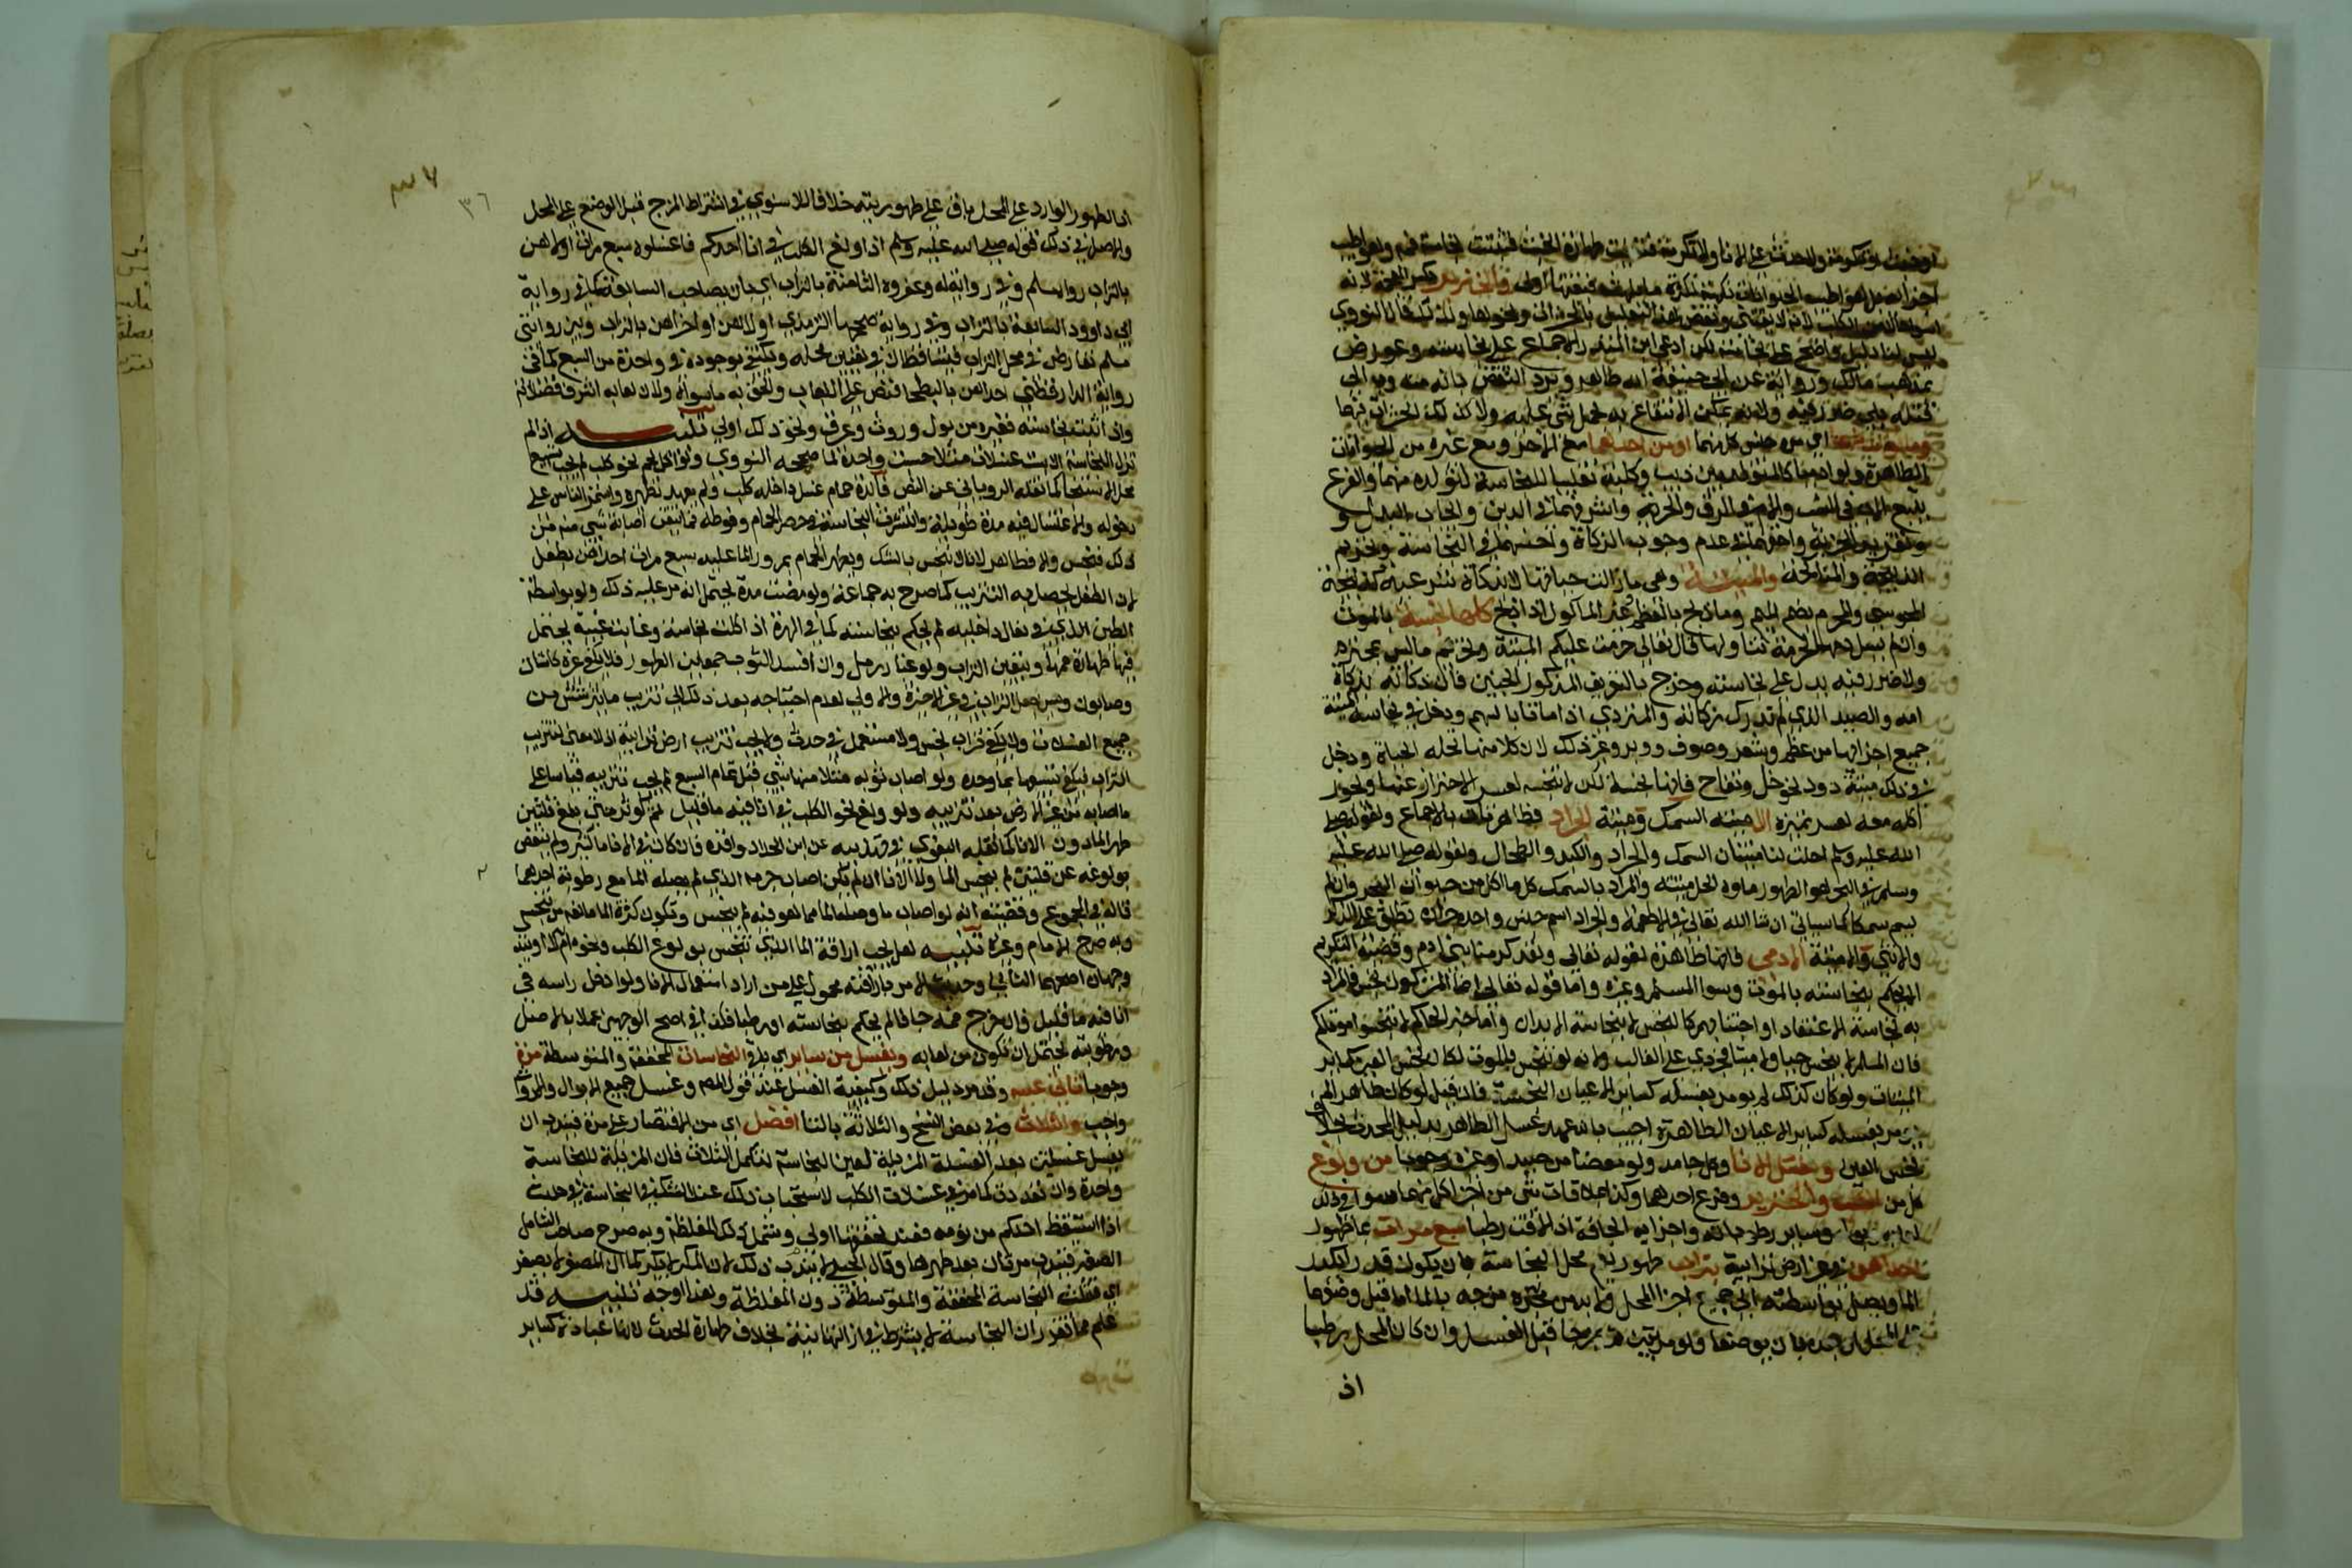 أجزائه بل هو أطيب الحيوانات نكهة لكثرة ما يلهث فبقيتها أولى والخنزير بكسر المعجمة لأنه
أسوأ حالا من الكلب لأنه لا يقتنى ونقض هذا التعليل بالحشرات ونحوها ولذلك قال النووي
ليس لنا دليل واضح على نجاسته لكن ادعى ابن المنذر الإجماع على نجاسته وعورض
بمذهب مالك ورواية عن أبي حنيفة أنه طاهر ويرد النقض بأنه مندوب إلى
قتله بلا ضرر فيه ولأنه يمكن الانتفاع به بحمل شيء عليه ولا كذلك الحشرات فيهما
وما تولد منهما أي من جنس كل منهما أو من أحدهما مع الآخر ومع غيره من الحيوانات
الطاهرة ولو آدميا كالمتولد بين ذئب وكلبة تغليبا للنجاسة لتولده منهما والفرع
يتبع الأب في النسب والأم في الرق والحرية وأشرفهما في الدين وإيجاب البدل و
وتقرير الجزية وأخفهما في عدم وجوب الزكاة وأخسهما في النجاسة وتحريم
الذبيحة والمناكحة والميتة وهي ما زالت حياتها لا بذكاة شرعية كذبيحة
المجوسي والمحرم بضم الميم وما ذبح بالعظم وغير المأكول إذا ذبح كلها نجسة بالموت
وإن لم يسل دمها لحرمة تناولها قال تعالى حرمت عليكم الميتة وتحريم ما ليس بمحترم
ولا ضرر فيه يدل على نجاسته وخرج بالتعريف المذكور الجنين فإن ذكاته بذكاة
أمه والصيد الذي لم تدرك ذكاته والمتردي إذا ماتا بالسهم ودخل في نجاسة الميتة
جميع أجزائها من عظم وشعر وصوف ووبر وغير ذلك لأن كلا منها تحله الحياة ودخل
في ذلك ميتة دود نحو خل وتفاح فإنها نجسة لكن لا تنجسه لعسر الاحتراز عنها ويجوز
أكله معه لعسر تمييزه إلا ميتة السمك وميتة الجراد فطاهرتان بالإجماع ولقوله صلى
الله عليه وسلم أحلت لنا ميتتان السمك والجراد والكبد والطحال ولقوله صلى الله عليه
وسلم في البحر هو الطهور ماؤه الحل ميتته والمراد بالسمك كل ما أكل من حيوان البحر وإن لم
يسم سمكا كما سيأتي إن شاء الله تعالى في الأطعمة والجراد اسم جنس واحده جرادة تطلق على الذكر
والأنثى وإلا ميتة الآدمي فإنها طاهرة لقوله تعالى ولقد كرمنا بني آدم وقضية التكريم
أن لا يحكم بنجاسته بالموت وسواء المسلم وغيره وأما قوله تعالى إنما المشركون نجس فالمراد
به نجاسة الاعتقاد أو اجتنابهم كالنجس لا نجاسة الأبدان وأما خبر الحاكم لا تنجسوا موتاكم
فإن المسلم لا ينجس حيا ولا ميتا فجرى على الغالب ولأنه لو تنجس بالموت لكان نجس العين كسائر
الميتات ولو كان كذلك لم يؤمر بغسله كسائر الأعيان النجسة فإن قيل لو كان طاهرا لم
يؤمر بغسله كسائر الأعيان الطاهرة أجيب بأنه عهد غسل الطاهر بدليل المحدث بخلاف
نجس العين ويغسل الإناء وكل جامد ولو معضا من صيد أو غيره وجوبا من ولوغ
كل من الكلب والخنزير وفرع أحدهما وكذا بملاقاة شيء من أجزاء كل منهما سواء في ذلك
لعابه وبوله وسائر رطوباته وأجزائه الجافة إذا لاقت رطبا سبع مرات بماء طهور
إحداهن في غير أرض ترابية بتراب طهور يعم محل النجاسة بأن يكون قدرا يكدر
الماء ويصل بواسطته إلى جميع أجزاء المحل ولا بد من مزجه بالماء إما قبل وضعهما
على المحل أو بعده بأن يوضعا ولو مرتبين ثم يمزجا قبل الغسل وإن كان المحل رطبا
إذ
٣٦
إذ الطهور الوارد على المحل باق على طهوريته خلافا للاسنوي في اشتراط المزج قبل الوضع على المحل
والأصل في ذلك قوله صلى الله عليه وسلم إذا ولغ الكلب في إناء أحدكم فاغسلوه سبع مرات أولاهن
بالتراب رواه مسلم وفي رواية له وعفروه الثامنة بالتراب أي بأن يصاحب السابعة كما في رواية
أبي داوود السابعة بالتراب وفي رواية صححها الترمذي أولاهن أو أخراهن بالتراب وبين روايتي
مسلم تعارض في محل التراب فيتساقطان في تعيين محله ويكتفى بوجوده في واحدة من السبع كما في
رواية الدارقطني إحداهن بالبطحاء فنص على اللعاب وألحق به ما سواه ولأن لعابه أشرف فضلاته
وإذا ثبتت نجاسته فغيره من بول وروث وعرق ونحو ذلك أولى تنبيه إذا لم
تزل النجاسة إلا بست غسلات مثلا حسبت واحدة كما صححه النووي ولو أكل لحم نحو كلب لم يجب تسبيع
محل الاستنجاء كما نقله الروياني عن النص فائدة حمام غسل داخله كلب ولم يعهد تطهيره واستمر الناس على
دخوله والاغتسال فيه مدة طويلة وانتشرت النجاسة في حصر الحمام وفوطه فما تيقن إصابة شيء منه من
ذلك فنجس وإلا فطاهر لأنا لا ننجس بالشك ويطهر الحمام بمرور الماء عليه سبع مرات إحداهن بطفل
لأن الطفل يحصل به التتريب كما صرح به جماعة ولو مضت مدة يحتمل أنه مر عليه ذلك ولو بواسطة
الطين الذي في نعال داخليه لم يحكم بنجاسته كما في الهرة إذا أكلت نجاسة وغابت غيبة يحتمل
فيها طهارة فمها ويتعين التراب ولو غبار رمل وإن أفسد الثوب جمعا بين الطهورين فلا يكفي غيره كأشنان
وصابون ويسن جعل التراب في غير الأخيرة والأولى لعدم احتياجه بعد ذلك إلى تتريب ما يترشش من
جميع الغسلات ولا يكفي تراب نجس ولا مستعمل في حدث ولا يجب تتريب أرض ترابية إذ لا معنى لتتريب
التراب فيكفي تسبيعها بماء وحده ولو أصاب ثوبه مثلا منها شيء قبل تمام السبع لم يجب تتريبه قياسا على
ما أصابه من غير الأرض بعد تتريبه ولو ولغ نحو الكلب في إناء فيه ماء قليل ثم كوثر حتى بلغ قلتين
طهر الماء دون الإناء كما نقله البغوي في تهذيبه عن ابن الحداد وأقره فإن كان في الإناء ماء كثير ولم ينقص
بولوغه عن قلتين لم ينجس الماء ولا الإناء إن لم يكن أصاب جرمه الذي لم يصله الماء مع رطوبة أحدهما
قاله في المجموع وقضيته أنه لو أصاب ما وصله الماء مما هو فيه لم ينجس وتكون كثرة الماء مانعة من تنجسه
وبه صرح الإمام وغيره تنبيه هل يجب إراقة الماء الذي تنجس بولوغ الكلب ونحوه أو يندب
وجهان أصحهما الثاني وحديث الأمر بإراقته محمول على من أراد استعمال الإناء ولو أدخل رأسه في
إناء فيه ماء قليل فإن خرج فمه جافا لم يحكم بنجاسته أو رطبا فكذا في أصح الوجهين عملا بالأصل
ورطوبته يحتمل أن تكون من لعابه ويغسل من سائر أي باقي النجاسات المخففة والمتوسطة مرة
وجوبا تأتي عليه وقد مر دليل ذلك وكيفية الغسل عند قول المص وغسل جميع الأبوال والأرواث
واجب والثلاث وفي بعض النسخ والثلاثة بالتاء أفضل أي من الاقتصار على مرة فيندب أن
يغسل غسلتين بعد الغسلة المزيلة لعين النجاسة لتكمل الثلاث فإن المزيلة للنجاسة
واحدة وإن تعددت كما مر في غسلات الكلب لاستحباب ذلك عند الشك في النجاسة في حديث
إذا استيقظ أحدكم من نومه فعند تحققها أولى وشمل ذلك المغلظة وبه صرح صاحب الشامل
الصغير فيندب مرتان بعد طهرها وقال الجيلي لا يندب ذلك لأن المكبر لا يكبر كما أن المصغر لا يصغر
أي فتثلث النجاسة المخففة والمتوسطة دون المغلظة وهذا أوجه تنبيه قد
علم مما تقرر أن النجاسة لا يشترط في إزالتها نية بخلاف طهارة الحدث لأنها عبادة كسائر